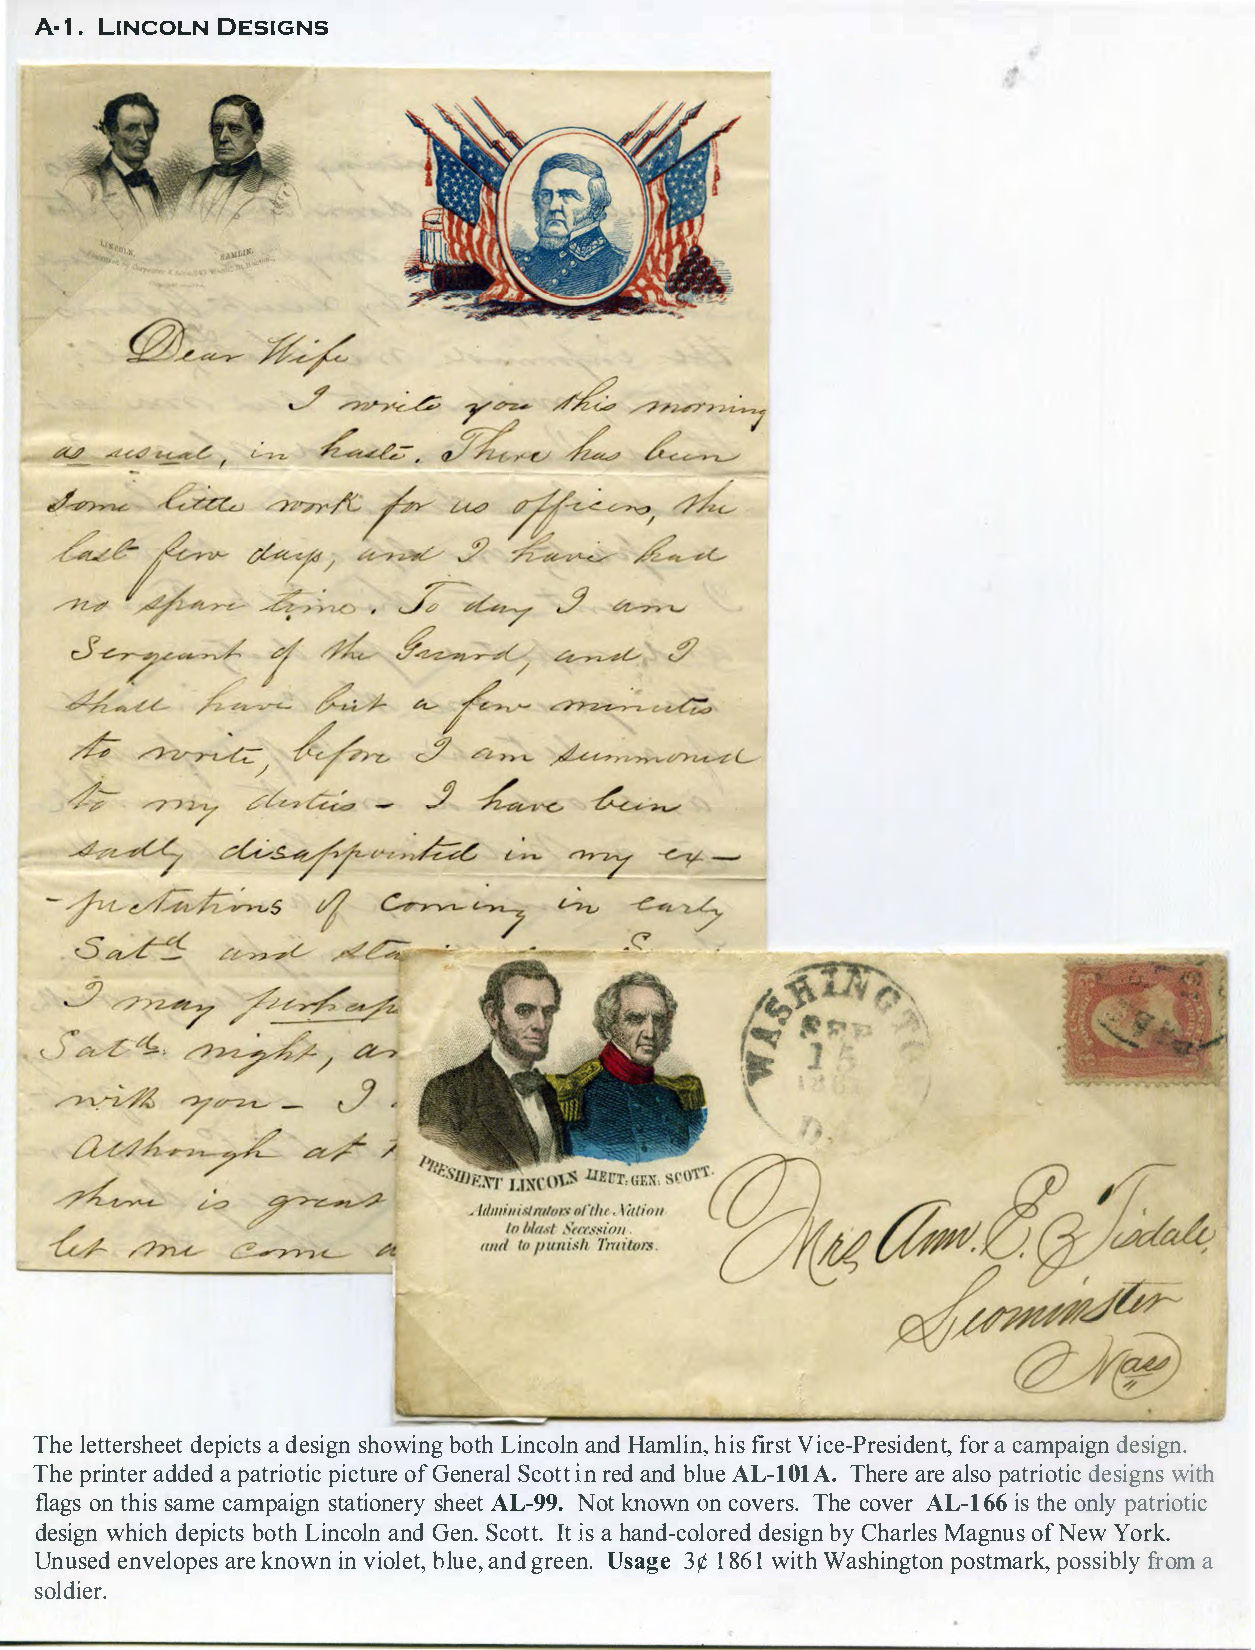 A-1. LINCOLN DESIGNS
LINCOLN.
HAMLIN.
Dear Wife
I write you this morning
as usual, in haste. There has been
some little work for us officers, the
last few days, and I have had
no spare time. To day I am
Sergeant of the Guard, and I
shall have but a few minutes
to write, before I am summoned
to my duties - I have been
sadly disappointed in my ex-
-pectations of coming in early
Satd and sta
I may perhap
Satd. night, a
with you - I
Although at
there is great
let me come
WASHINGT
SEP
15
186
D.
PRESIDENT LINCOLN LIEUT: GEN: SCOTT.
Administrators of the Nation
to blast Secession.
and to punish Traitors.
Mrs Ann. E. Tisdale,
Leominster
Mass
The lettersheet depicts a design showing both Lincoln and Hamlin, his first Vice-President, for a campaign design.
The printer added a patriotic picture of General Scott in red and blue AL-101A. There are also patriotic designs with
flags on this same campaign stationery sheet AL-99. Not known on covers. The cover AL-166 is the only patriotic
design which depicts both Lincoln and Gen. Scott. It is a hand-colored design by Charles Magnus of New York.
Unused envelopes are known in violet, blue, and green. Usage 3¢ 1861 with Washington postmark, possibly from a
soldier.